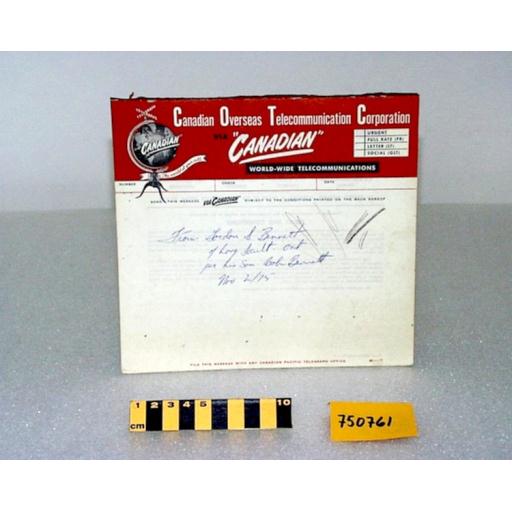 Canadian Overseas Telecommunication Corporation
VIA "CANADIAN"
WORLD-WIDE TELECOMMUNICATIONS
URGENT
FULL RATE (FR)
LETTER (LT)
SOCIAL (GLT)
CANADIAN
NUMBER CHECK DATE
SEND THIS MESSAGE VIA CANADIAN SUBJECT TO THE CONDITIONS PRINTED ON THE BACK HEREOF
From Gordon S Bennett
of Long Sault Ont
per his Son Bob Bennett
Nov 2/75
FILE THIS MESSAGE WITH ANY CANADIAN PACIFIC TELEGRAPH OFFICE
1 2 3 4 5 10
cm
750761